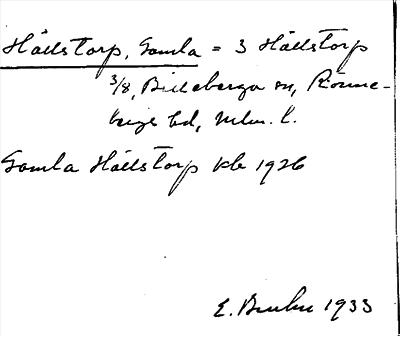 Hällstorp, Gamla = 3 Hällstorp
3/8, Billeberga sn, Rönne-
bergs hd, Mlm. l.
Gamla Hällstorp kb 1926
E. 1933